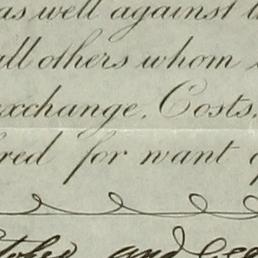 as well against
all others whom
exchange, Costs,
red for want
and